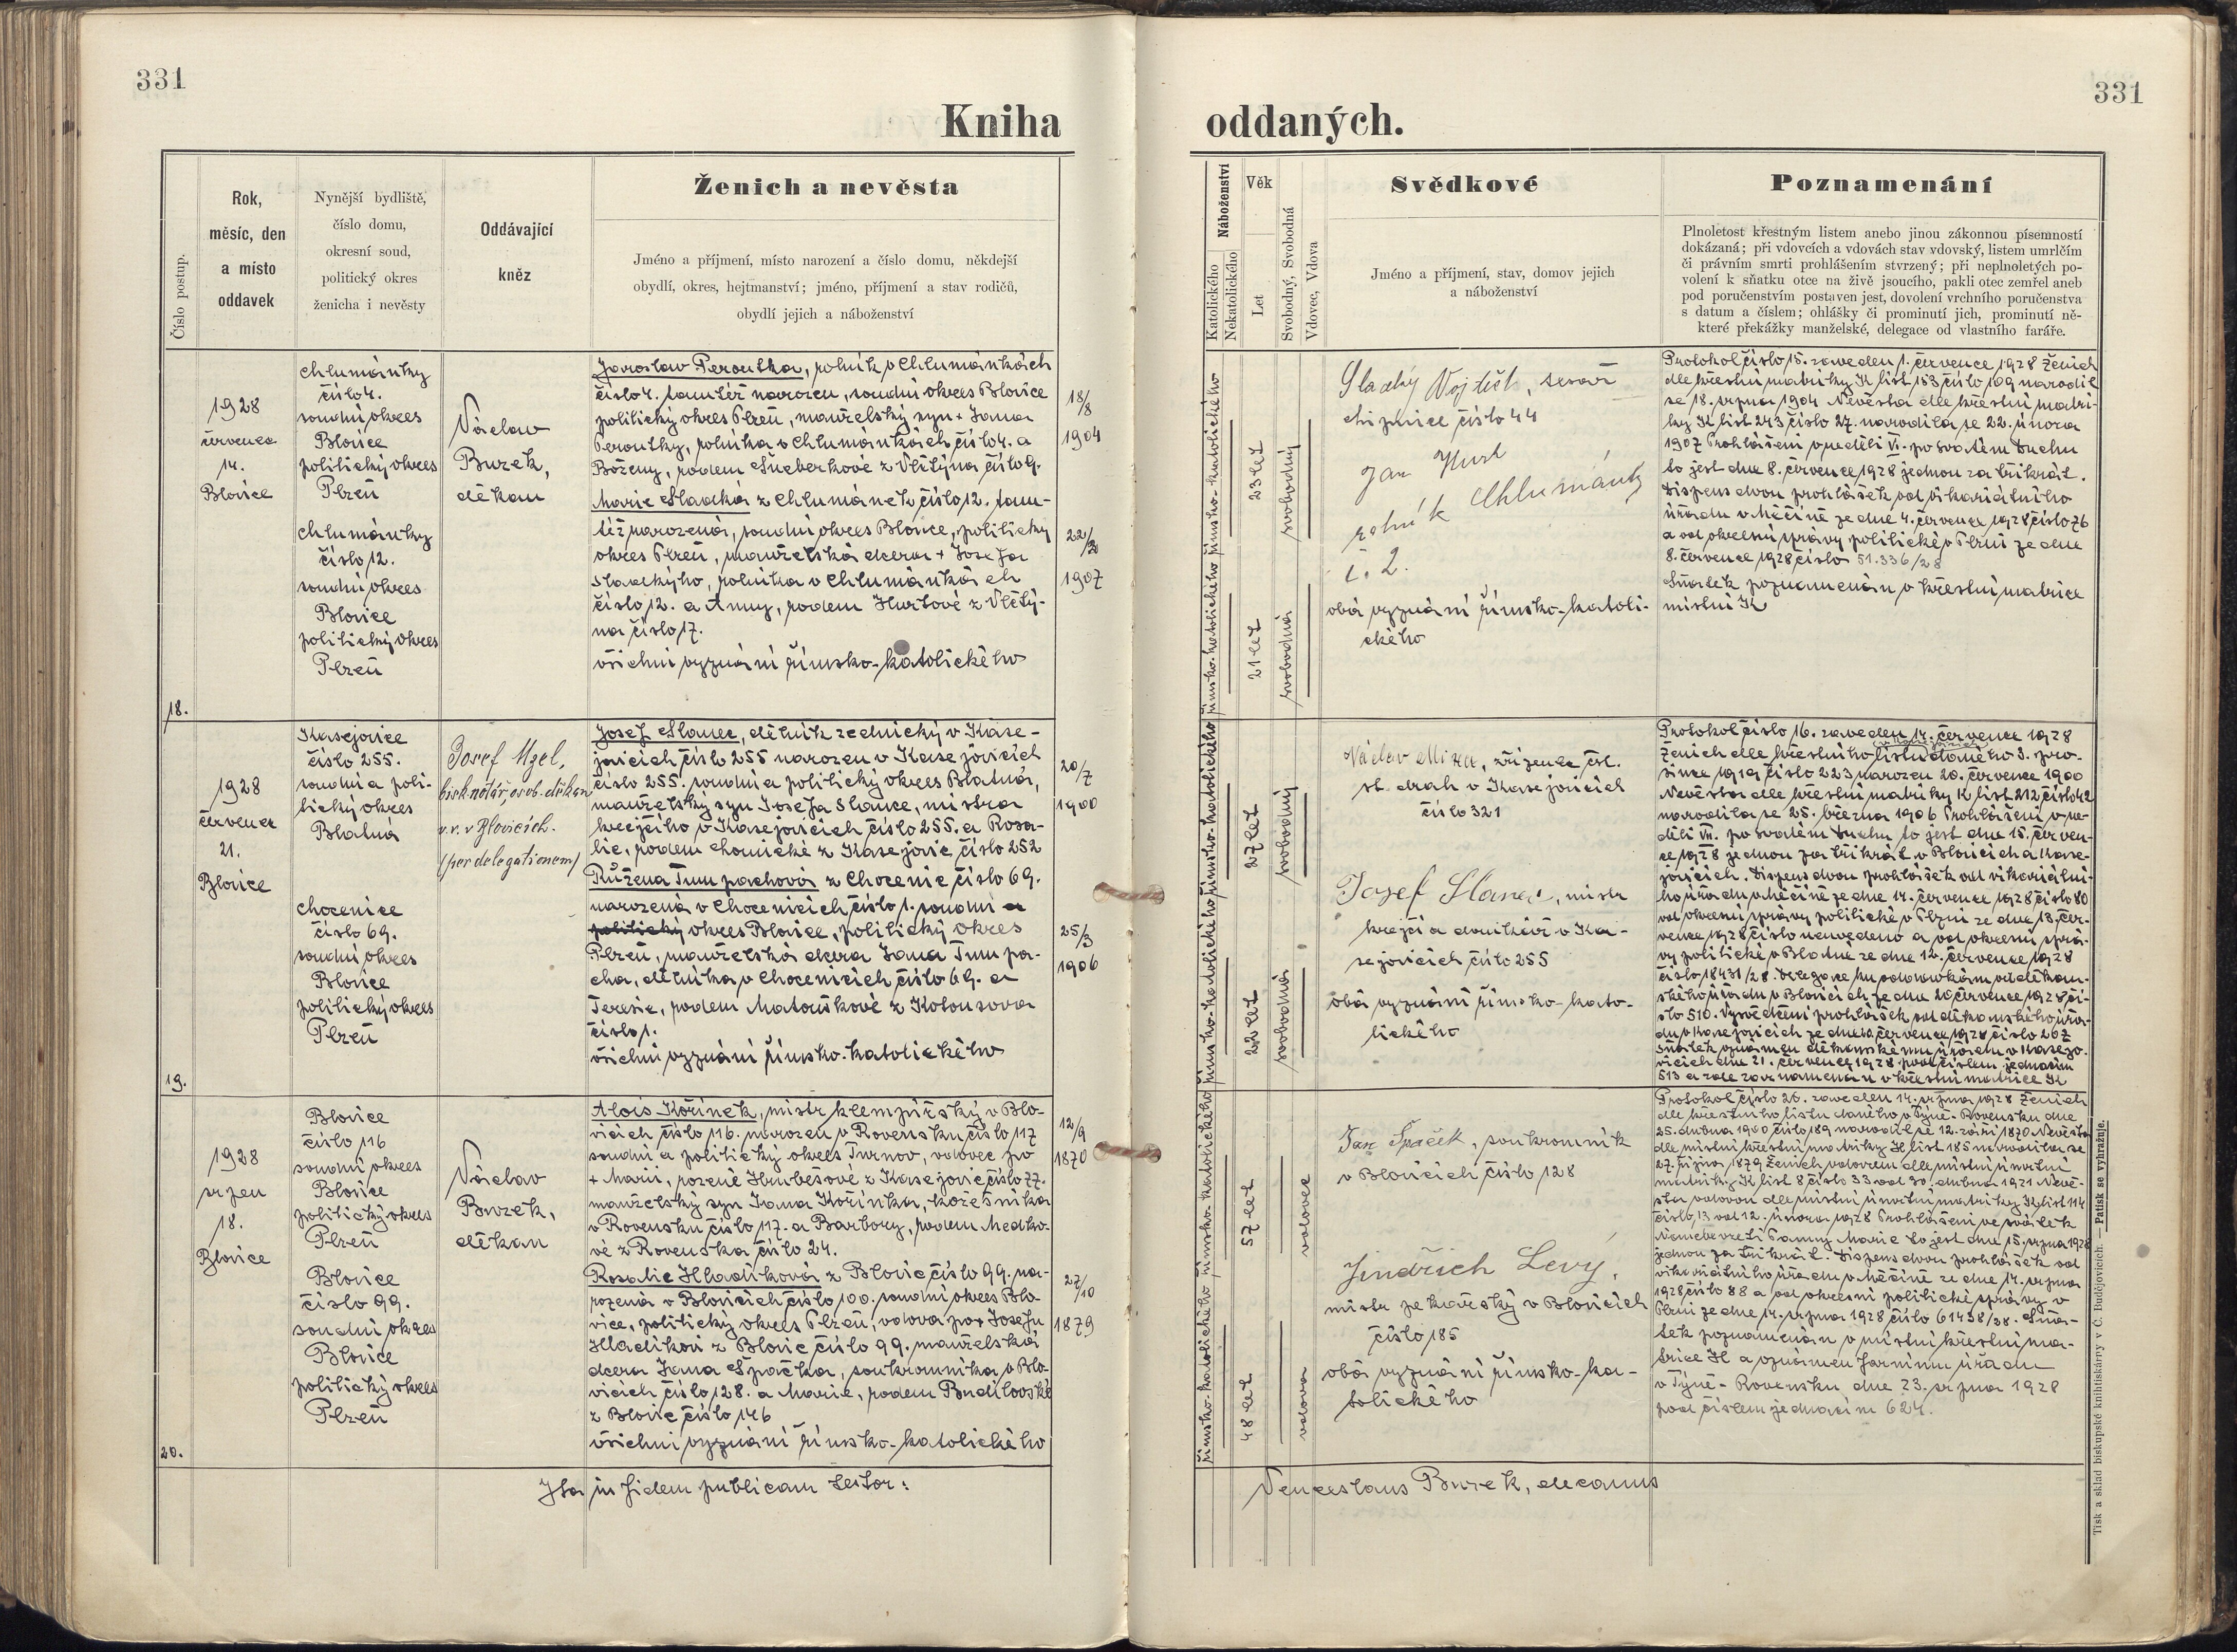 331
331
Kniha
oddaných.
Číslo postup.
Rok,
měsíc, den
a místo
oddavek
Nynější bydliště,
číslo domu,
okresní soud,
politický okres
ženicha i nevěsty
Oddávající
kněz
Ženich a nevěsta
Jméno a příjmení, místo narození a číslo domu, někdejší
obydlí, okres, hejtmanství; jméno, příjmení a stav rodičů,
obydlí jejich a náboženství
Náboženství
Katolického
Nekatolického
Věk
Let
Svobodný, Svobodná
Vdovec, Vdova
Svědkové
Jméno a příjmení, stav, domov jejich
a náboženství
Poznamenání
Plnoletost křestným listem anebo jinou zákonnou písemností
dokázaná; při vdovcích a vdovách stav vdovský, listem umrlčím
či právním smrti prohlášením stvrzený; při neplnoletých po-
volení k sňatku otce na živě jsoucího, pakli otec zemřel aneb
pod poručenstvím postaven jest, dovolení vrchního poručenstva
s datum a číslem; ohlášky či prominutí jich, prominutí ně-
které překážky manželské, delegace od vlastního faráře.
18.
1928
července
14.
Blovice
Chlumánky
číslo 4.
soudní okres
Blovice
politický okres
Plzeň
Chlumánky
číslo 12.
soudní okres
Blovice
politický okres
Plzeň
Václav
Burek,
děkan
Jaroslav Peroutka, rolník v Chlumánkách
číslo 4. tamtéž narozen, soudní okres Blovice
politický okres Plzeň, manželský syn + Jana
Peroutky, rolníka v Chlumánkách číslo 4. a
Boženy, rodem Šneberkové z Vlčtýna číslo 9.
Marie Sladká z Chlumánek číslo 12. tam-
též narozená, soudní okres Blovice, politický
okres Plzeň, manželská dcera + Josefa
Sladkýho, rolníka v Chlumánkách
číslo 12. a Anny, rodem Hurtové z Vlčtý-
na číslo 17.
všichni vyznání římsko-katolického
18/8
1904
22/2
1907
římsko-katolického
římsko-katolického
23 let
21 let
svobodný
svobodná
Sladký Vojtěch,
číslo 44
Jan Hurt
rolník Chlumánky
č. 2.
oba vyznání římsko-katoli-
ckého
Protokol číslo 15. zaveden 1. července 1928 Ženich
dle křestní matriky K list 183 číslo 109 narodil
se 18. srpna 1904 Nevěsta dle křestní matri-
ky K list 243 číslo 27. narodila se 22. února
1907 Prohlášeni v neděli VI. po svatém Duchu
to jest dne 8. července 1928 jednou za třikrát.
Dispens dvou prohlášek od vikariátního
úřadu v Měčíně ze dne 4. července 1928 číslo 76
a od okresní správy politické v Plzni ze dne
8. července 1928 číslo 51.336/28
Sňatek poznamenán v křestní matrice
místní K
19.
1928
červenec
21.
Blovice
Kasejovice
číslo 255.
soudní a poli-
tický okres
Blatná
Chocenice
číslo 69.
soudní okres
Blovice
politický okres
Plzeň
Josef Mzel,
bisk. notář, osob. děkan
v.v. v Blovicích.
(per delegationem)
Josef Slanec, dělník zednický v Kase-
jovicích číslo 255 narozen v Kasejovicích
číslo 255. soudní a politický okres Blatná,
manželský syn Josefa Slance, mistra
krejčího v Kasejovicích číslo 255. a Rosa-
lie, rodem Chomické z Kasejovic číslo 252
Růžena Tumpachová z Chocenic číslo 69.
narozená v Chocenicích číslo 1. soudní a
politický okres Blovice, politický okres
Plzeň, manželská dcera Jana Tumpa-
cha, dělníka v Chocenicích číslo 69. a
Terezie, rodem Matouškové z Kotousova
číslo 1.
všichni vyznání římsko-katolického
20/7
1900
25/3
1906
římsko-katolického
římsko-katolického
27 let
22 let
svobodný
svobodná
Václav, zřízenec čsl.
st. drah v Kasejovicích
číslo 321
Josef Slanec, mistr
krejčí a domkář v Ka-
sejovicích číslo 255
oba vyznání římsko-kato-
lického
Protokol číslo 16. zaveden 14. července 1928
v Kasejovicích
Ženich dle křestního listu daného 3. pro-
since 1919 číslo 223 narozen 20. července 1900
Nevěsta dle křestní matriky K list 212 číslo 42
narodila se 25. března 1906 Prohlášeni v ne-
děli VII. po svatém Duchu to jest dne 15. červen-
ce 1928 jednou za třikrát v Blovicích a Kase-
jovicích. Dispens dvou prohlášek od vikariátní-
ho úřadu v Měčíně ze dne 14. července 1928 číslo 80
od okresní správy politické v Plzni ze dne 13. čer-
vence 1928 číslo neuvedeno a od okresní sprá-
vy politické v Blatné ze dne 12. července 1928
číslo 18431/28. Delegace ku oddavkám od děkan-
ského úřadu v Blovicích ze dne 20. července 1928 čí-
slo 510. Vysvědčení prohlášek od děkanského úřa-
du v Kasejovicích ze dne července 1928 číslo 267
Sňatek oznámen děkanskému úřadu v Kasejo-
vicích dne 21. července 1928 pod číslem jednacím
513 a zde zaznamenán v křestní matrice K
20.
1928
srpen
18.
Blovice
Blovice
číslo 116
soudní okres
Blovice
politický okres
Plzeň
Blovice
číslo 99.
soudní okres
Blovice
politický okres
Plzeň
Václav
Burek,
děkan
Alois Kořínek, mistr klempířský v Blo-
vicích číslo 116. narozen v Rovensku číslo 117
soudní a politický okres Turnov, vdovec po
+ Marii, rozené Hrubešové z Kasejovic číslo 77.
manželský syn Jana Kořínka, kožešníka
v Rovensku číslo 117. a Barbory, rodem Medko-
vé z Rovenska číslo 24.
Rosalie Hladíková z Blovic číslo 99. na-
rozená v Blovicích číslo 100. soudní okres Blo-
vice, politický okres Plzeň, vdova po + Josefu
Hladíkovi z Blovic číslo 99. manželská
dcera Jana Špačka, soukromníka v Blo-
vicích číslo 128. a Marie, rodem Budilovské
z Blovic číslo 146
všichni vyznání římsko-katolického
12/9
1870
27/10
1879
římsko-katolického
římsko-katolického
57 let
48 let
vdovec
vdova
Jan Špaček, soukromník
v Blovicích číslo 128
Jindřich Levý,
mistr pekařský v Blovicích
číslo 185
oba vyznání římsko-ka-
tolického
Protokol číslo 20. zaveden 14. srpna 1928 Ženich
dle křestního listu daného v Týně-Rovensku dne
25. dubna 1900 číslo 189 narodil se 12. září 1870. Nevěsta
dle místní křestní matriky H list 185 narodila se
27. října 1879 Ženich vdovcem dle místní úmrtní
matriky K list 8 číslo 33 od 30. dubna 1921 Nevě-
sta vdovou dle místní úmrtní matriky K list 114
číslo 13 od 12. února 1928 Prohlášeni ve svátek
Nanebevzetí Panny Marie to jest dne 15. srpna 1928
jednou za třikrát. Dispens dvou prohlášek od
vikariátního úřadu v Měčíně ze dne 14. srpna
1928 číslo 88 a od okresní politické správy v
Plzni ze dne 14. srpna 1928 číslo 61438/28. Sňa-
tek poznamenán v místní křestní ma-
trice H a oznámen farnímu úřadu
v Týně-Rovensku dne 23. srpna 1928
pod číslem jednacím 624.
Ita in fidem publicam testor:
Venceslaus Burek, decanus
Tisk a sklad biskupské knihtiskárny v Č. Budějovicích. — Patisk se vyhražuje.